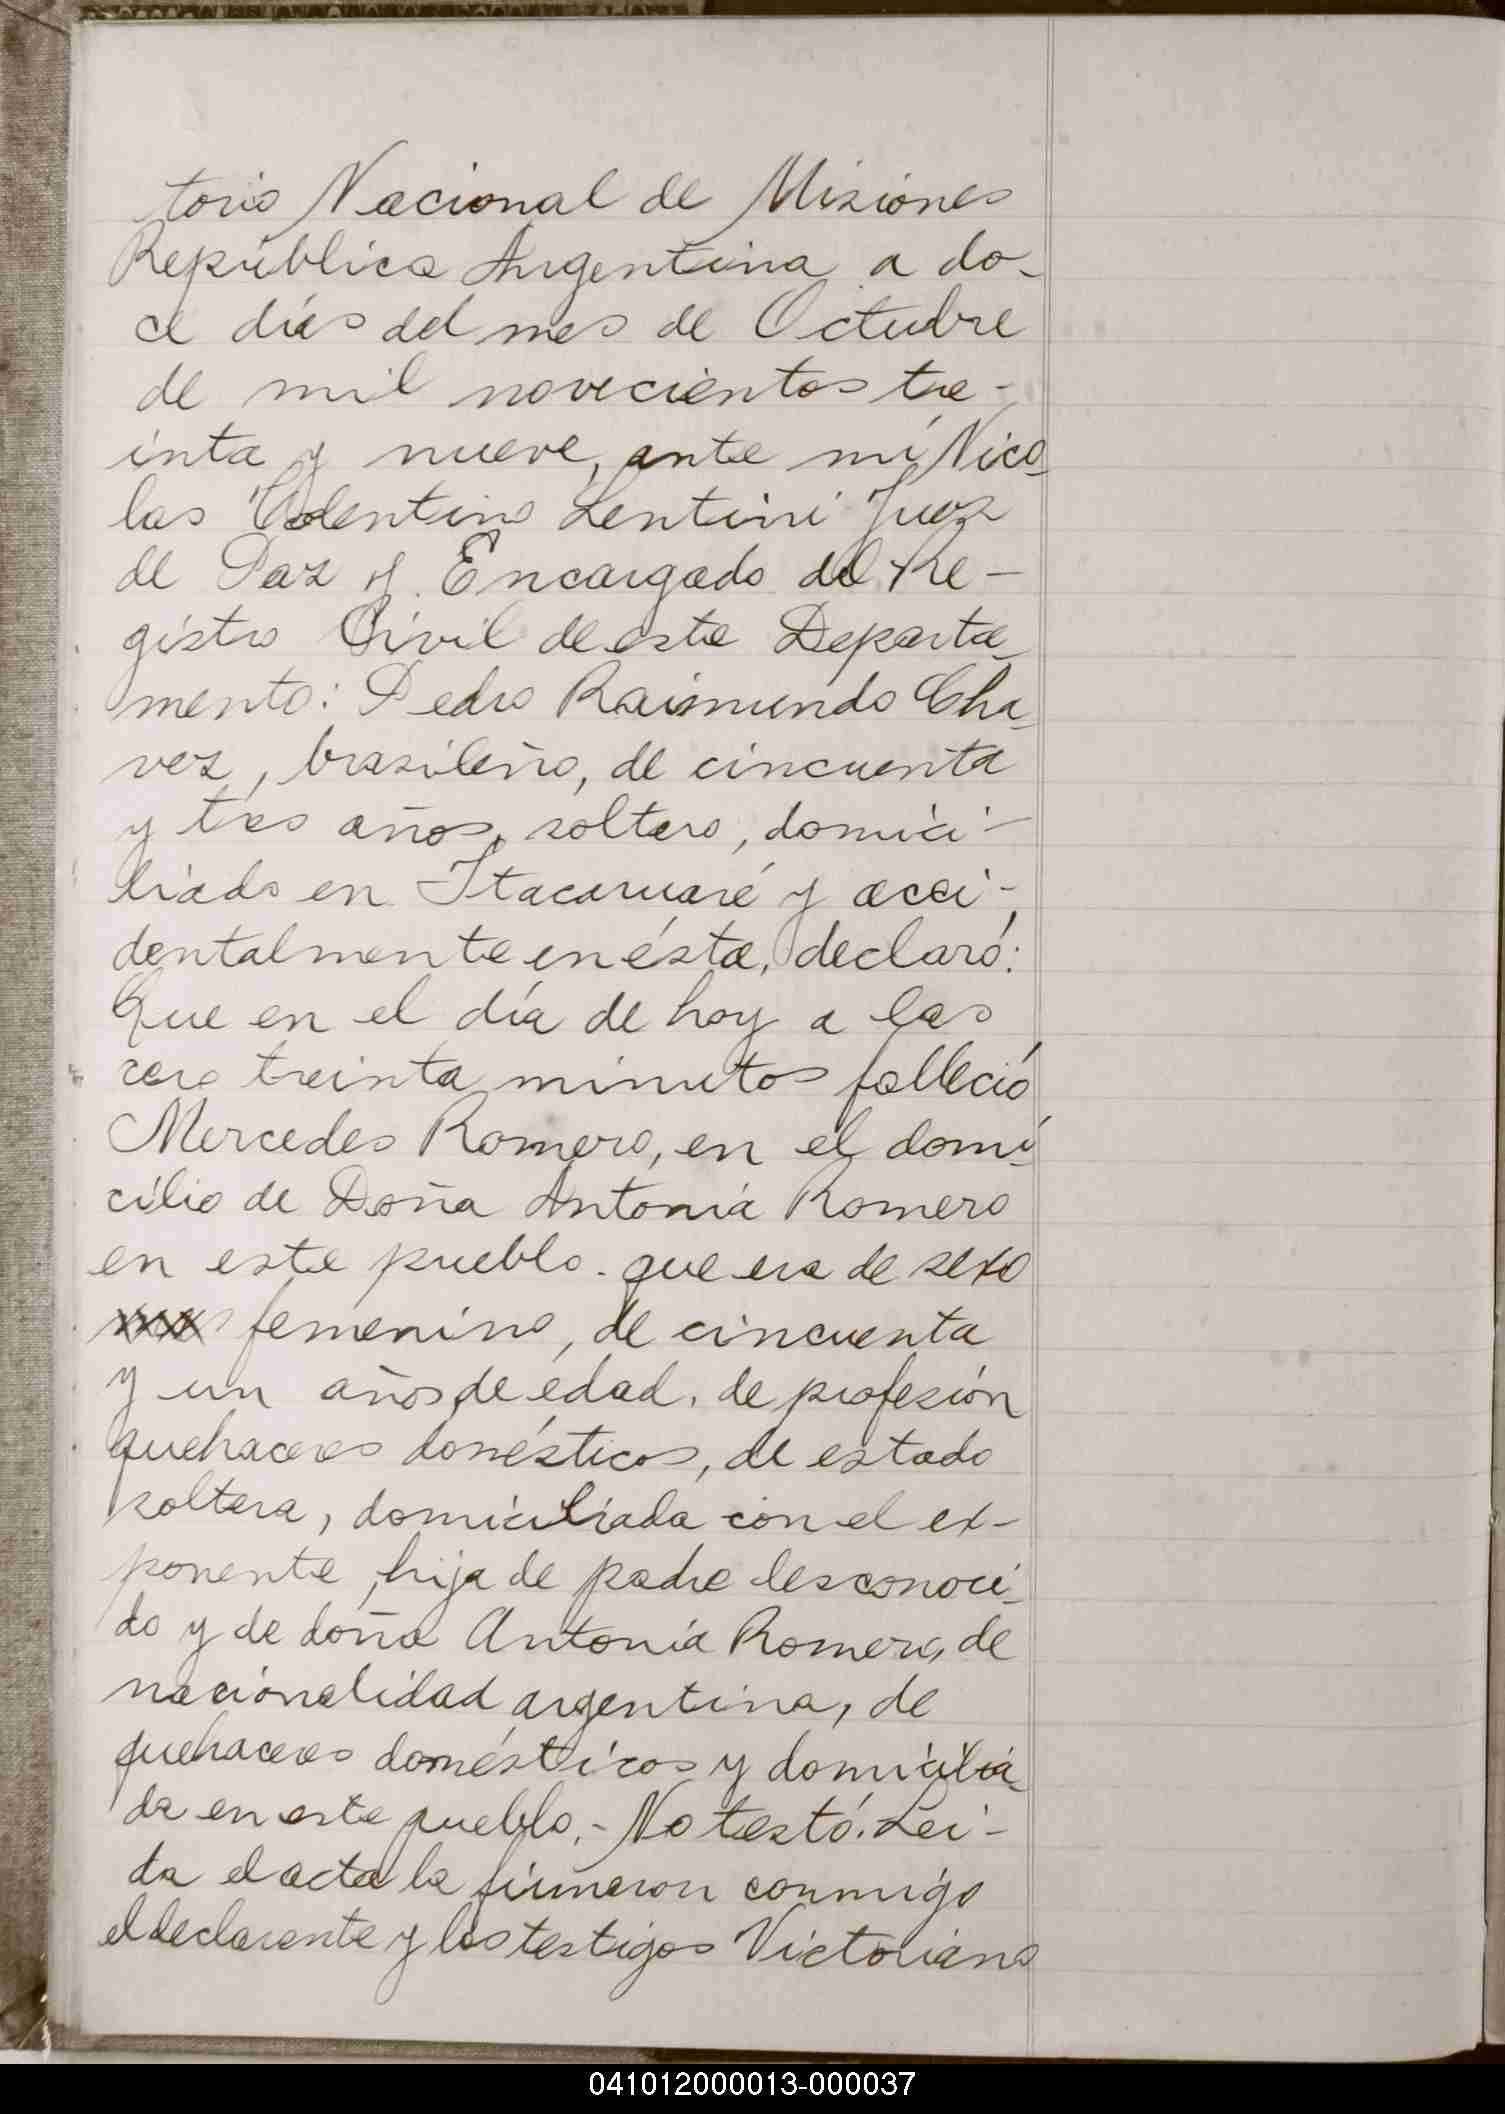 torio Nacional de Misiones
República Argentina a do-
ce días del mes de Octubre
de mil novecientos tre-
inta y nueve, ante mí Nico-
las Valentino Lentini Juez
de Paz y Encargado del Re-
gistro Civil de este Departa-
mento: Pedro Raimundo Cha-
vez, brasileño, de cincuenta
y tres años, soltero, domici-
liado en Itacaruaré y acci-
dentalmente en ésta, declaró:
Que en el día de hoy a las
cero treinta minutos falleció
Mercedes Romero, en el domi-
cilio de Doña Antonia Romero
en este pueblo. que era de sexo
femenino, de cincuenta
y un años de edad, de profesión
quehaceres domésticos, de estado
soltera, domiciliada con el ex-
ponente, hija de padre desconoci-
do y de doña Antonia Romero, de
nacionalidad argentina, de
quehaceres domésticos y domicilia-
da en este pueblo.- No testó. Lei-
da el acta la firmaron conmigo
el declarante y los testigos Victoriano
041012000013-000037